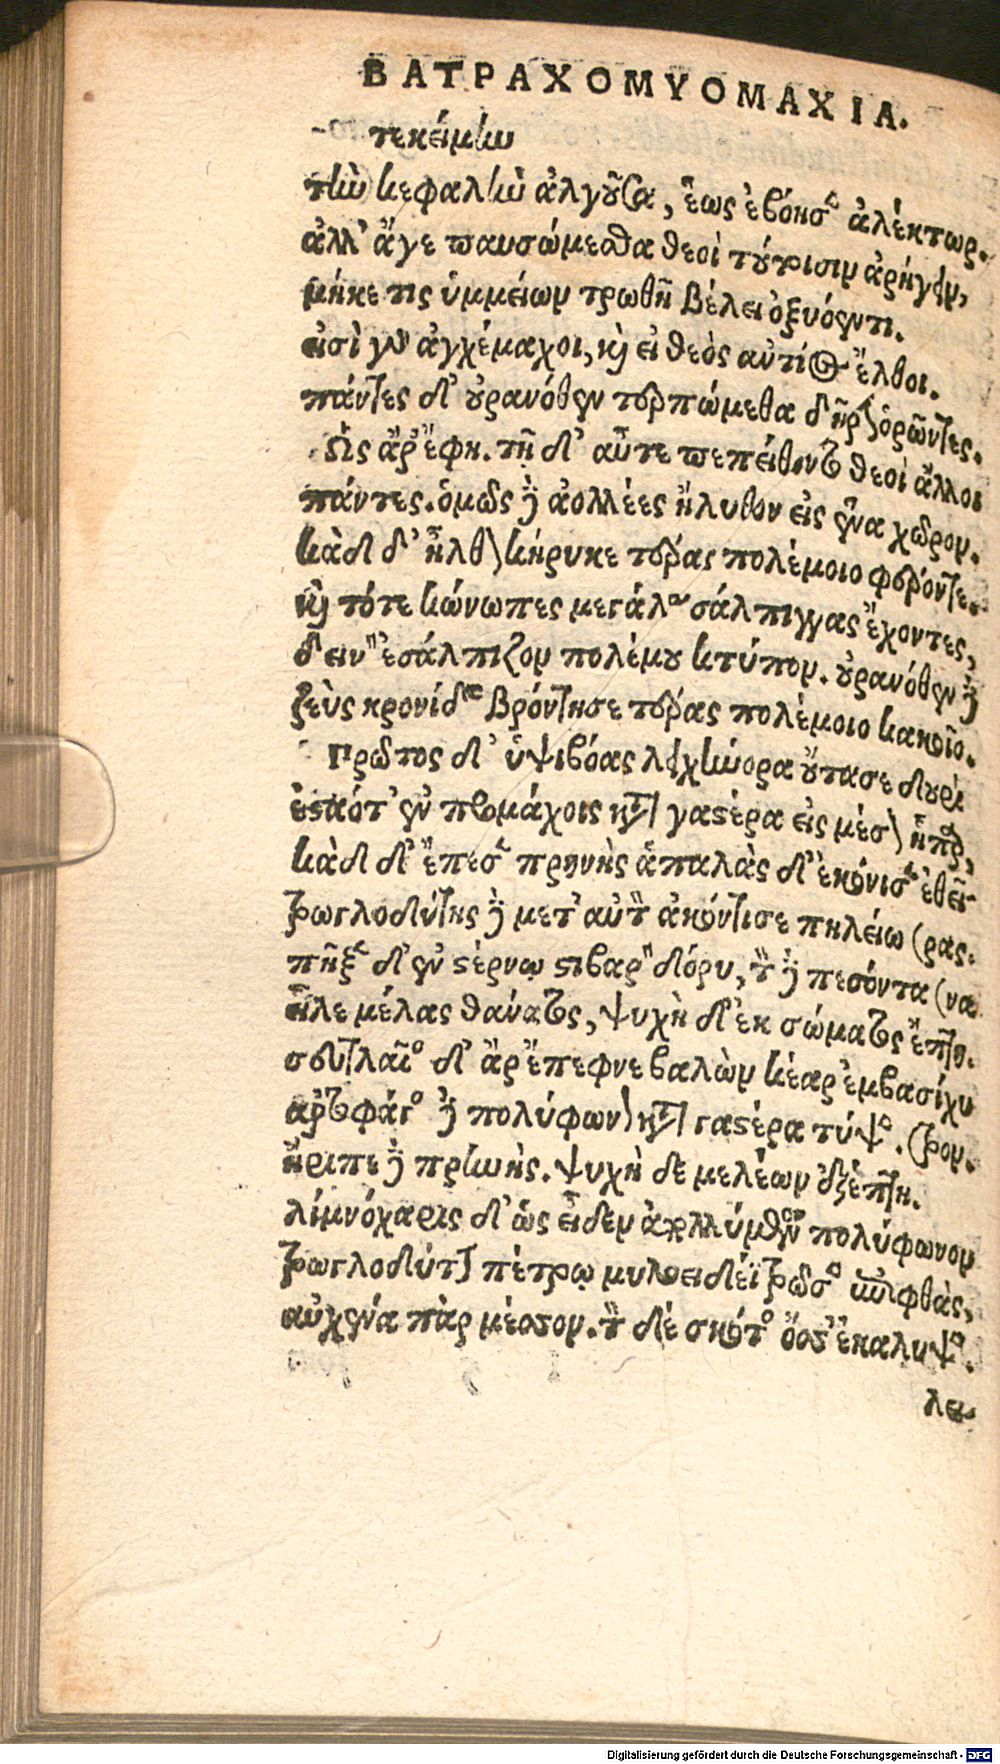 ΒΑΤΡΑΧΟΜΥΟΜΑΧΙΑ.
τεκείμην
τὴν κεφαλὴν ἀλγοῦσα, ἕως ἐβόησεν ἀλέκτωρ.
ἀλλ' ἄγε παυσώμεσθα θεοὶ τούτοισιν ἀρήγειν,
μήκε τις ὑμμείων τρωθῇ βέλει ὀξυόεντι.
εἰσὶ γὰρ ἀγχέμαχοι, καὶ εἰ θεὸς αὐτίος ἔλθοι.
πάντες δ' οὐρανόθεν τερπώμεθα δῆριν ὁρῶντες.
Ὣς ἄρ' ἔφη. τῇ δ' αὖτε πεπείθοντο θεοὶ ἄλλοι
πάντες. ὁμῶς δὲ ἀολλέες ἤλυθον εἰς ἕνα χῶρον.
κὰδ δ' ἦλθον κήρυκε τέρας πολέμοιο φέροντε.
καὶ τότε κώνωπες μεγάλας σάλπιγγας ἔχοντες,
δεινὴν ἐσάλπιζον πολέμου κτύπον. οὐρανόθεν δὲ
ζεὺς κρονίδης βρόντησε τέρας πολέμοιο κακοῖο.
Πρῶτος δ' ὑψιβόας λειχήνορα οὔτασε δουρὶ
ἑσταότ' ἐν προμάχοις κατὰ γαστέρα εἰς μέσον ἧπαρ,
κὰδ δ' ἔπεσεν πρηνὴς ἁπαλὰς δ' ἐκόνισεν ἐθεί-
τρωγλοδύτης δὲ μετ' αὐτὸν ἀκόντισε πηλείω (ρας.
πῆξεν δ' ἐν στέρνῳ στιβαρὸν δόρυ, τὸν δὲ πεσόντα (να
εἷλε μέλας θάνατος, ψυχὴ δ' ἐκ σώματος ἔπτη.
σευτλαῖος δ' ἄρ' ἔπεφνε βαλὼν κέαρ ἐμβασίχυ
ἀρτοφάγος δὲ πολύφωνον κατὰ γαστέρα τύψε. (τρον.
ἤριπε δὲ πρηνὴς. ψυχὴ δε μελέων ἐξέπτη.
λίμνόχαρις δ' ὡς εἶδεν ἀπολλύμενον πολύφωνον
τρωγλοδύτην πέτρῳ μυλοειδέϊ τρῶσεν ἐπιφθὰς,
αὐχένα πὰρ μέσσον. τὸν δὲ σκότος ὄσσ' ἐκαλυψε.
λει-
Digitalisierung gefördert durch die Deutsche Forschungsgemeinschaft - DFG